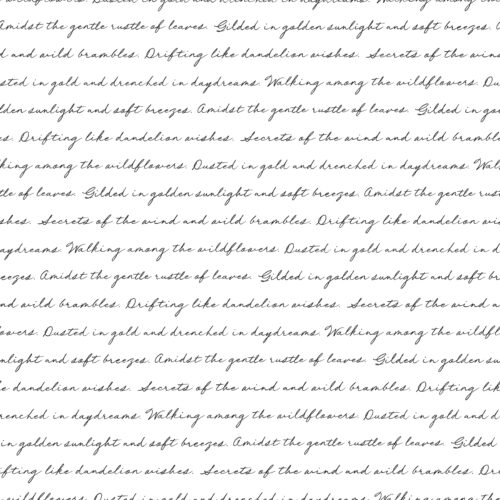 wildflowers. Dusted in gold and drenched in daydreams. Walking among the
Amidst the gentle rustle of leaves. Gilded in golden sunlight and soft breezes.
d and wild brambles. Drifting like dandelion wishes. Secrets of the wind
sted in gold and drenched in daydreams. Walking among the wildflowers. Du
lden sunlight and soft breezes. Amidst the gentle rustle of leaves. Gilded in go
es. Drifting like dandelion wishes. Secrets of the wind and wild bramble
king among the wildflowers. Dusted in gold and drenched in daydreams. Walk
tle of leaves. Gilded in golden sunlight and soft breezes. Amidst the gentle rust
shes. Secrets of the wind and wild brambles. Drifting like dandelion wis
aydreams. Walking among the wildflowers. Dusted in gold and drenched in d
eezes. Amidst the gentle rustle of leaves. Gilded in golden sunlight and soft br
nd wild brambles. Drifting like dandelion wishes. Secrets of the wind a
lowers. Dusted in gold and drenched in daydreams. Walking among the wildfl
nlight and soft breezes. Amidst the gentle rustle of leaves. Gilded in golden su
e dandelion wishes. Secrets of the wind and wild brambles. Drifting lik
renched in daydreams. Walking among the wildflowers. Dusted in gold and d
in golden sunlight and soft breezes. Amidst the gentle rustle of leaves. Gilded
ifting like dandelion wishes. Secrets of the wind and wild brambles. Dr
wildflowers. Dusted in gold and drenched in daydreams. Walking among the